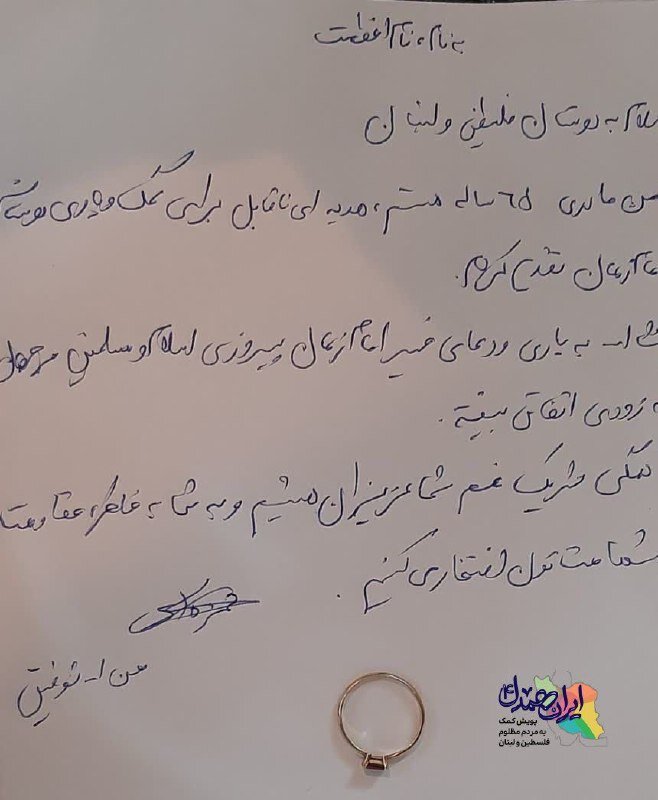 به نام، نام اعظمت
سلام به دوستان فلسطین و لبنان
من مادری ۶۵ ساله هستم، هدیه ای ناقابل برای کمک و یاری دوستان
امام زمان تقدیم کردم.
به یاری و دعای خیر امام زمان پیروزی اسلام و مسلمین
به زودی اتفاق بیفته.
همگی شریک غم شما عزیزان هستیم و به شما به خاطر مقاومت
شهامتتون افتخار می کنیم.
من ا... توفیق
ایران همدل
پویش کمک
به مردم مظلوم
فلسطین و لبنان